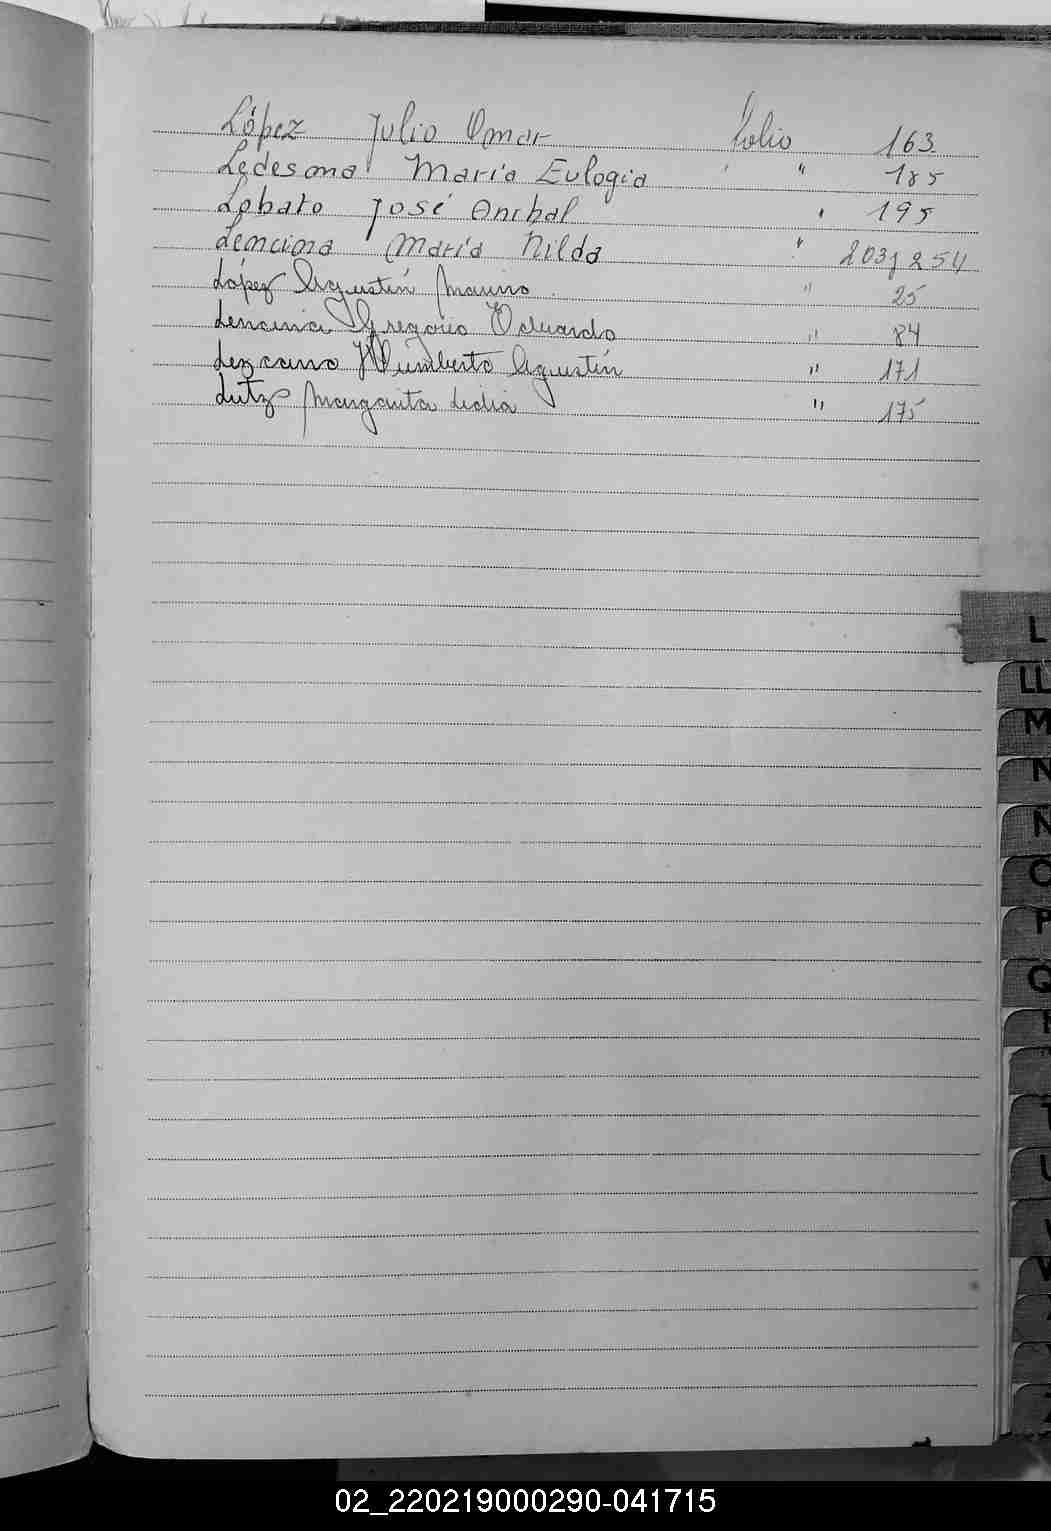 López Julio Omar folio 163
Ledesma María Eulogia " 185
Lobato José Anibal " 195
Lencina María Nilda " 203 y 254
López Agustín Mauro " 25
Lencina Gregorio Eduardo " 84
Lezcano Humberto Agustín " 171
Lutz Margarita Lidia " 175
L
LL
M
N
Ñ
O
P
Q
T
U
V
Z
02_220219000290-041715